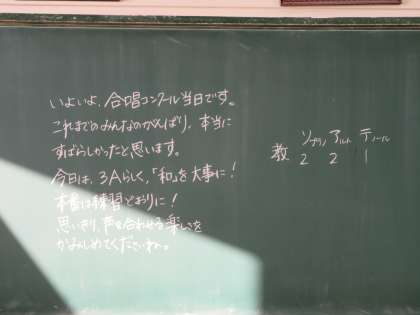 いよいよ、合唱コンクール当日です。
これまでのみんなのがんばり、本当に
すばらしかったと思います。
今日は、3Aらしく、「和」を大事に！
本番は練習どおりに！
思いきり、声を合わせる楽しさを
かみしめてくださいね。
ソプラノ アルト テノール
教 2 2 1